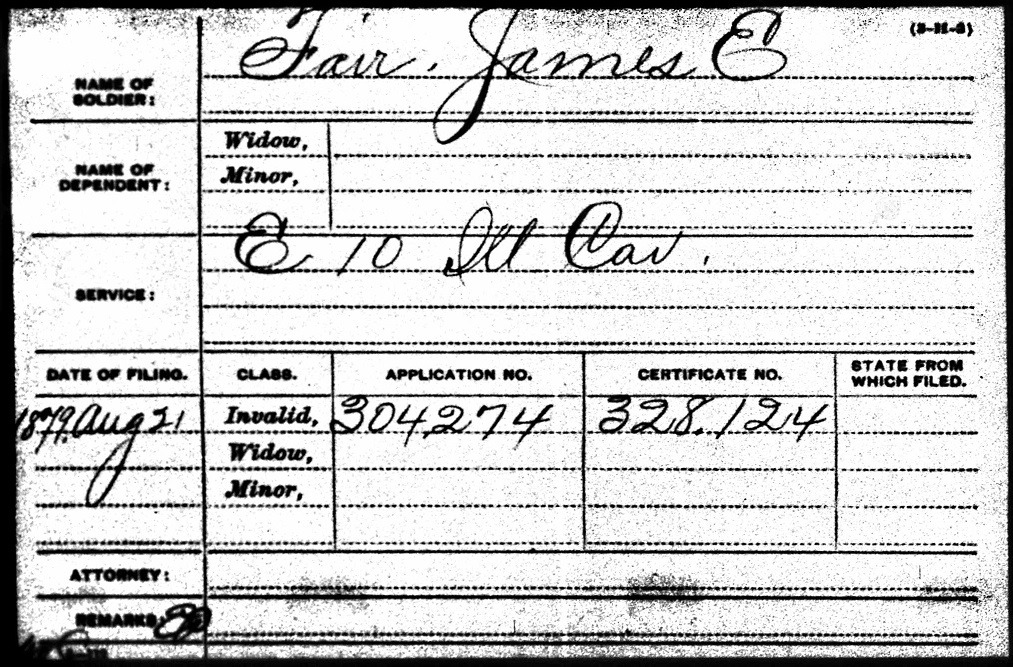 (3-11-3)
NAME OF SOLDIER: Fair. James E
NAME OF DEPENDENT: Widow,
Minor,
SERVICE: E 10 Ill Cav.
DATE OF FILING. CLASS. APPLICATION NO. CERTIFICATE NO. STATE FROM WHICH FILED.
1879. Aug 21 Invalid, 304274 328.124
Widow,
Minor,
ATTORNEY:
REMARKS: